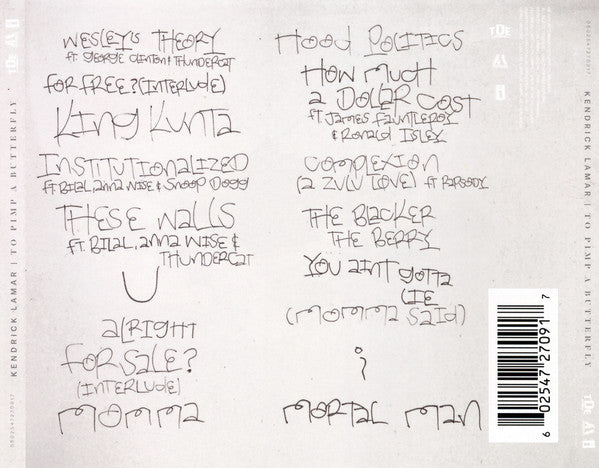 WESLEY'S THEORY
ft GEORGE CLINTON & THUNDERCAT
FOR FREE? (INTERLUDE)
KING KUNTA
INSTITUTIONALIZED
ft BILAL, anna WISE & SNOOP DOGG
THESE WALLS
ft BILAL, anna WISE &
THUNDERCAT
U
aLRIGHT
FOR SALE?
(INTERLUDE)
MOMMA
HOOD POLITICS
HOW MUCH
a DOLER COST
ft JAMES FAUNTLEROY
& RONALD ISLEY
COMPLEXION
(a ZULU LOVE) ft RAPSODY
THE BLACKER
THE BERRY
YOU aINT GOTTA
LIE
(MOMMA SaID)
i
MORTAL MAN
KENDRICK LAMAR | TO PIMP A BUTTERFLY
0602547270917
TDE
KENDRICK LAMAR | TO PIMP A BUTTERFLY
0602547270917
TDE
TDE
6 02547 27091 7